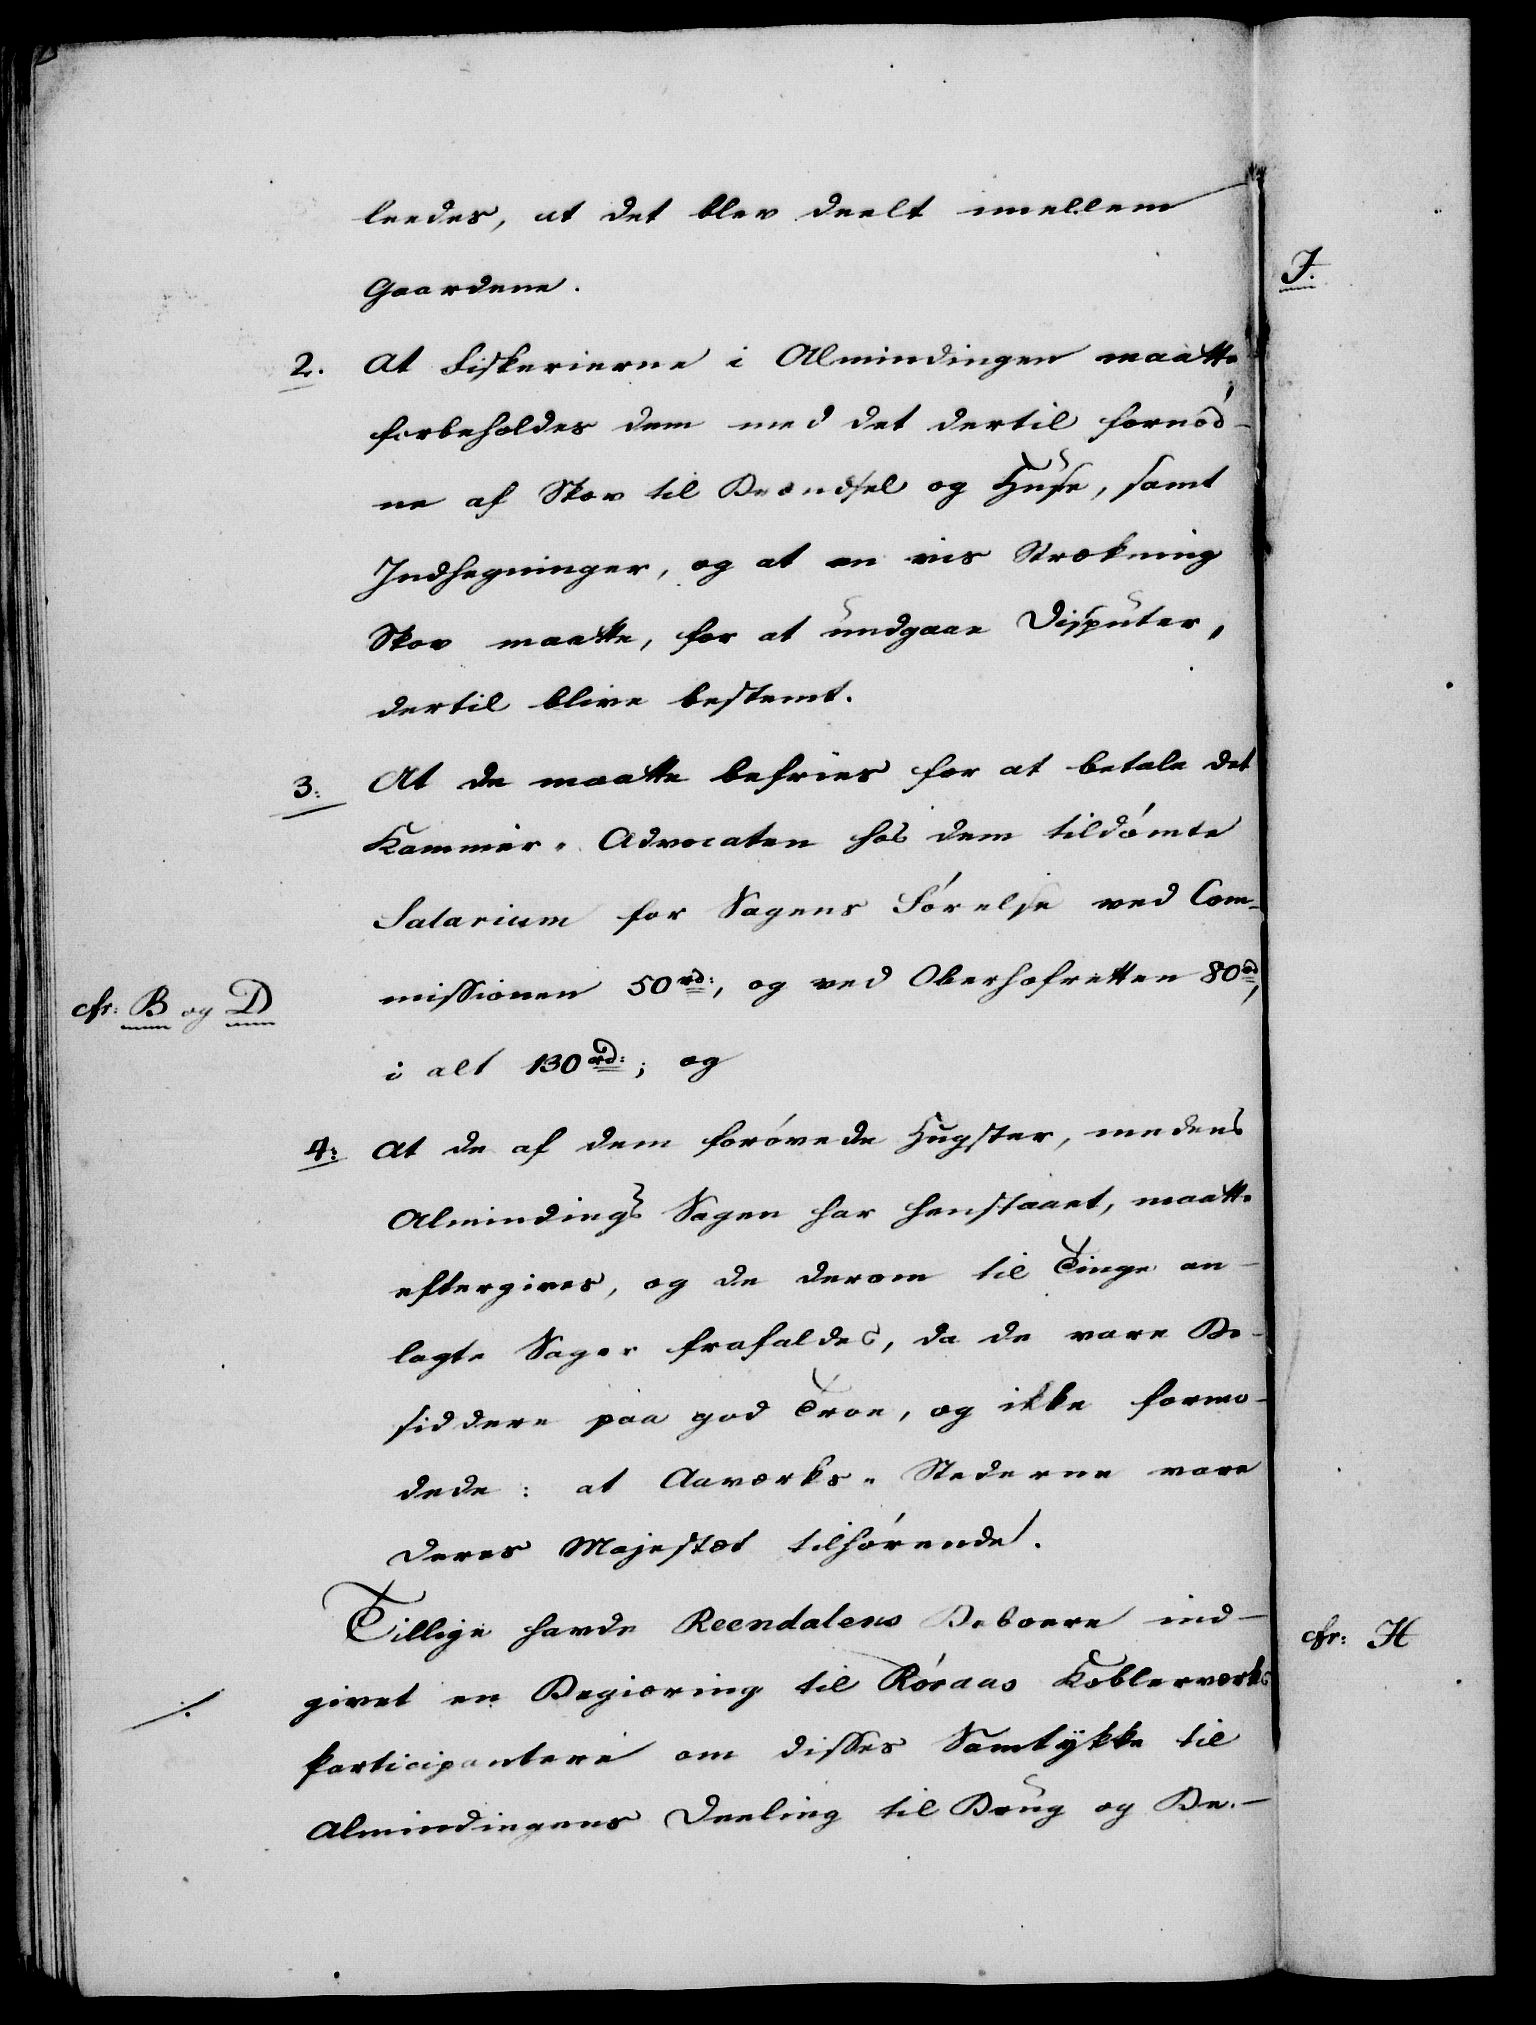 leedes, at det blev deelt imellem
Gaardene.
2. At Fiskerierne i Almindingen maatte
forbeholdes dem med det dertil fornød-
ne af Skov til Brændsel og Huse, samt
Indhegninger, og at en vis Strækning
Skov maatte, for at undgaae Disputer,
dertil blive bestemt.
3: At de maatte befries for at betale det
Kammer-Advocaten hos dem tildømte
Salarium for Sagens Førelse ved Com-
missionen 50 rd:, og ved Oberhofretten 80 rd,
cfr: B og D
i alt 130 rd:; og
4: At de af dem forøvede Hugster, medens
Almindings Sagen har henstaaet, maatte
eftergives, og de derom til Tinge an-
lagte Sager frafaldes, da de vare Be-
siddere paa god Troe, og ikke formo-
dede: at Aaværks-Stederne vare
Deres Majestæt tilhørende.
Tillige havde Reendalens Beboere ind-
givet en Begiæring til Røraas Kobberværks
./.
participantere om disses Samtykke til
Almindingens Deeling til Brug og Be-
J.
cfr: H